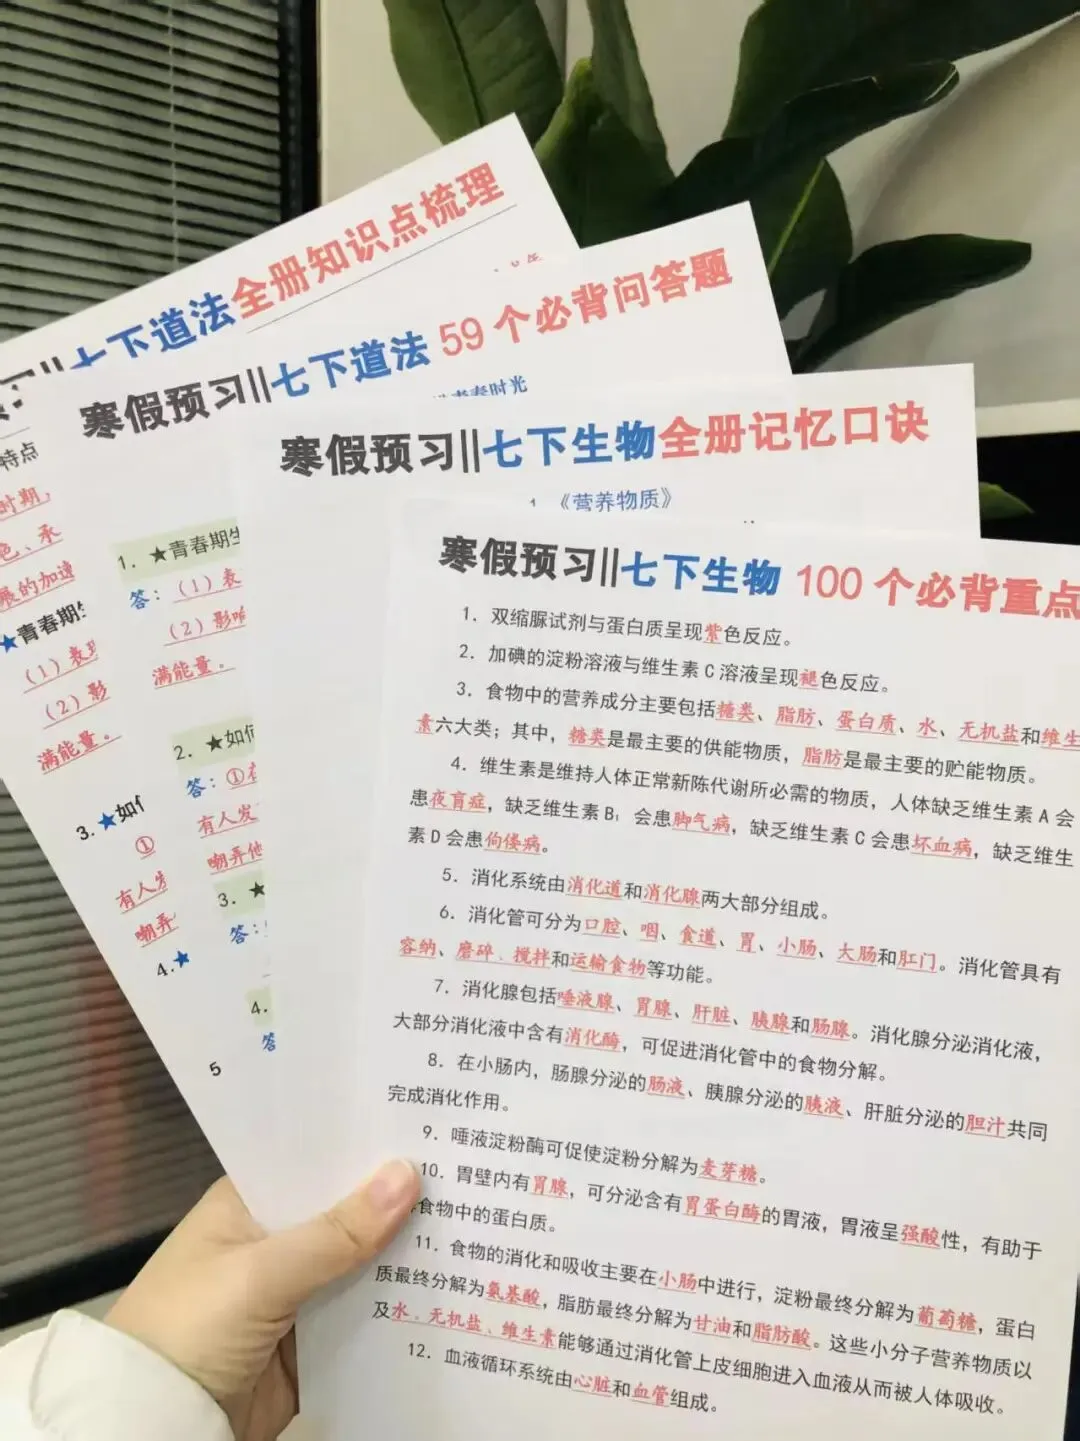 七下道法全册知识点梳理
特点
时期,
色、承
展的加速
★青春期
(1)表
(2)影
满能量。
3.★如
①
有人发
嘲弄
4.★
5
寒假预习||七下道法 59 个必背问答题
1. ★青春期生
答:(1)表
(2)影响
满能量。
2. ★如何
答:①
有人发
嘲弄他
3. ★
答:
4.
答
寒假预习||七下生物全册记忆口诀
1 《营养物质》
寒假预习||七下生物 100 个必背重点
1. 双缩脲试剂与蛋白质呈现紫色反应。
2. 加碘的淀粉溶液与维生素 C 溶液呈现褪色反应。
3. 食物中的营养成分主要包括糖类、脂肪、蛋白质、水、无机盐和维生
素六大类;其中,糖类是最主要的供能物质,脂肪是最主要的贮能物质。
4. 维生素是维持人体正常新陈代谢所必需的物质,人体缺乏维生素 A 会
患夜盲症,缺乏维生素 B₁ 会患脚气病,缺乏维生素 C 会患坏血病,缺乏维生
素 D 会患佝偻病。
5. 消化系统由消化道和消化腺两大部分组成。
6. 消化管可分为口腔、咽、食道、胃、小肠、大肠和肛门。消化管具有
容纳、磨碎、搅拌和运输食物等功能。
7. 消化腺包括唾液腺、胃腺、肝脏、胰腺和肠腺。消化腺分泌消化液,
大部分消化液中含有消化酶,可促进消化管中的食物分解。
8. 在小肠内,肠腺分泌的肠液、胰腺分泌的胰液、肝脏分泌的胆汁共同
完成消化作用。
9. 唾液淀粉酶可促使淀粉分解为麦芽糖。
10. 胃壁内有胃腺,可分泌含有胃蛋白酶的胃液,胃液呈强酸性,有助于
食物中的蛋白质。
11. 食物的消化和吸收主要在小肠中进行,淀粉最终分解为葡萄糖,蛋白
质最终分解为氨基酸,脂肪最终分解为甘油和脂肪酸。这些小分子营养物质以
及水、无机盐、维生素能够通过消化管上皮细胞进入血液从而被人体吸收。
12. 血液循环系统由心脏和血管组成。